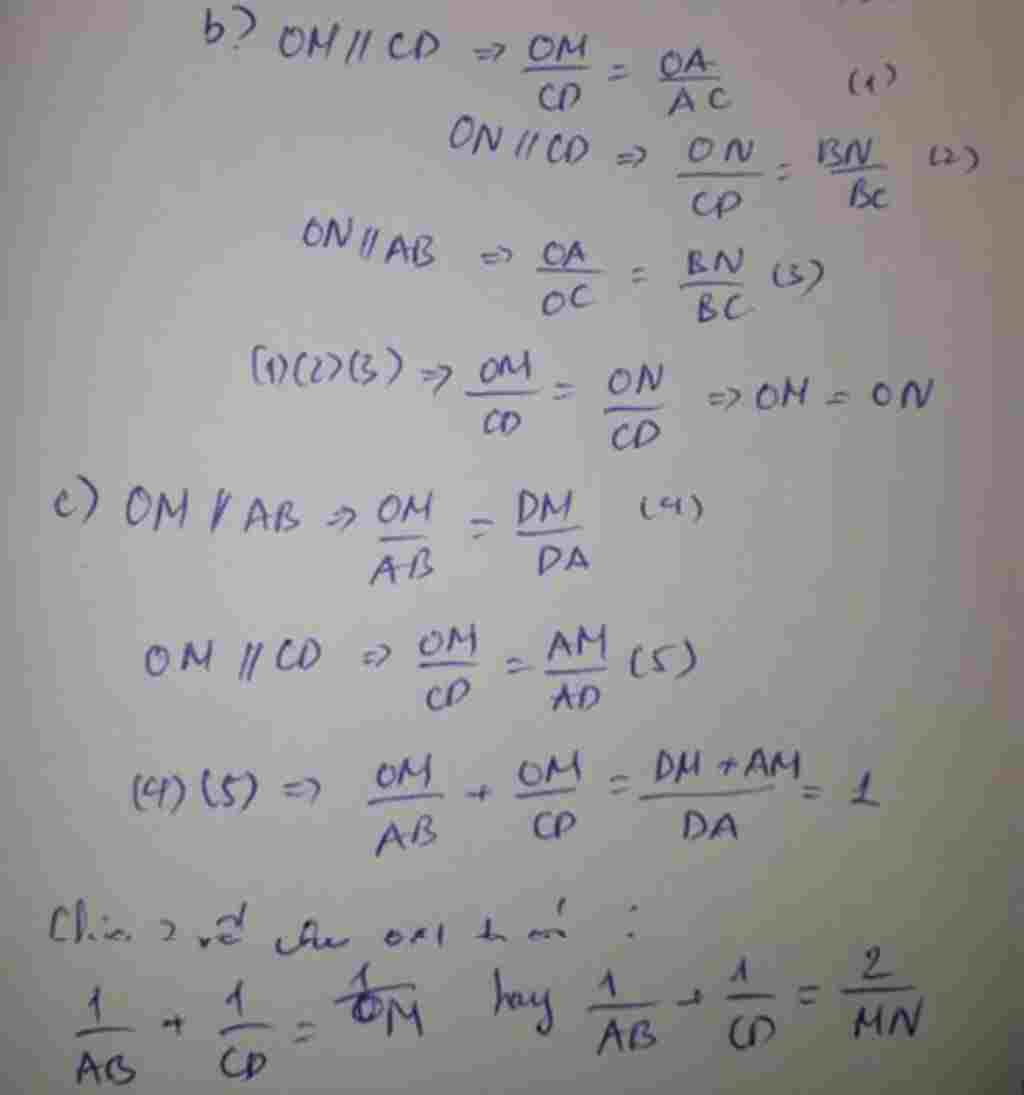 b) OM // CD => OM/CD = OA/AC (1)
ON // CD => ON/CD = BN/BC (2)
ON // AB => OA/OC = BN/BC (3)
(1)(2)(3) => OM/CD = ON/CD => OM = ON
c) OM // AB => OM/AB = DM/DA (4)
OM // CD => OM/CD = AM/AD (5)
(4)(5) => OM/AB + OM/CD = DM + AM/DA = 1
Chia 2 vế cho OM ta có :
1/AB + 1/CD = 1/OM hay 1/AB + 1/CD = 2/MN